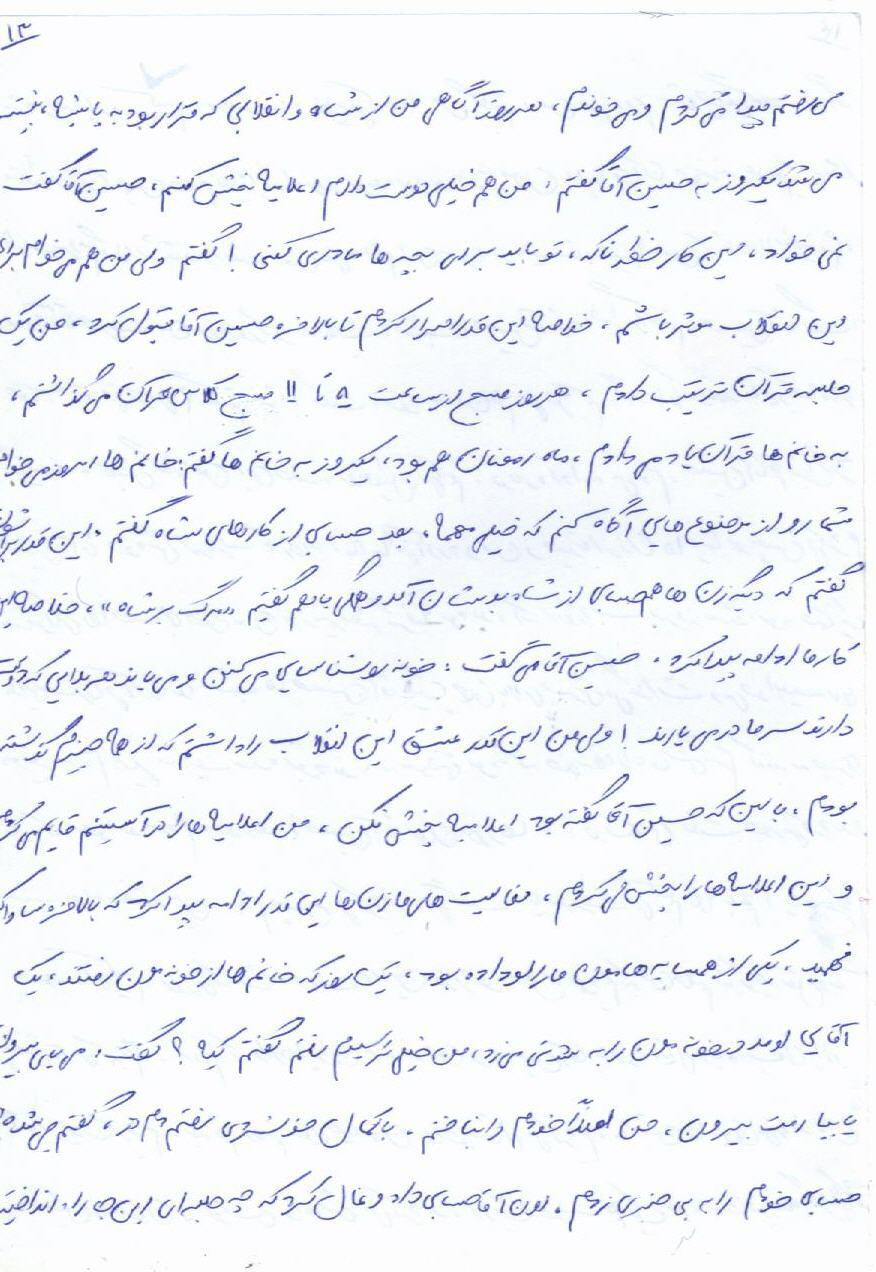 ۱۳
می رفتم پیدا می کردم و می خوندم، هر روز آگاهی من از شاه و انقلابی که قرار بود به پا بشه، بیشتر
می شد، یکروز به حسین آقا گفتم: من هم خیلی دوست دارم اعلامیه پخش کنم، حسین آقا گفت
نمی خواد، این کار خطرناکه، تو باید برای بچه ها مادری کنی! گفتم ولی من هم می خوام برای
این انقلاب موثر باشم، خلاصه این قدر اصرار کردم تا بالاخره حسین آقا قبول کرد، من یک
جلسه قرآن ترتیب دادم، هر روز صبح از ساعت ۸ تا ۱۱ صبح کلاس قرآن می گذاشتم،
به خانم ها قرآن یاد می دادم، ماه رمضان هم بود، یکروز به خانم ها گفتم: خانم ها امروز می خوام
شما رو از موضوع هایی آگاه کنم که خیلی مهمه، بعد حسابی از کارهای شاه گفتم، این قدر براشون
گفتم که دیگه زن ها هم حسابی از شاه بدشان آمد و همگی با هم گفتیم «مرگ بر شاه»، خلاصه این
کار ما ادامه پیدا کرد. حسین آقا می گفت: خونه رو شناسایی می کنن و می یان هر بلایی که دوست
دارند سر ما در می یارند! ولی من این قدر عشق این انقلاب را داشتم که از همه چیزم گذشته
بودم، با این که حسین آقا گفته بود اعلامیه پخش نکن، من اعلامیه ها را در آستینم قایم می کردم
و این اعلامیه ها را پخش می کردم، فعالیت های ما زن ها این قدر ادامه پیدا کرد که بالاخره ساواک
فهمید، یکی از همسایه هامون ما را لو داده بود، یک روز که خانم ها از خونه مون رفتند، یک
آقایی اومد در خونه مون را به شدت می زد، من خیلی ترسیدم رفتم گفتم کیه؟ گفت: می یای بیرون
یا بیارمت بیرون، من اصلاً خودم را نباختم. با کمال خونسردی رفتم دم در، گفتم چی شده
حسابی خودم را به بی خبری زدم. اون آقا حسابی داد و قال کرد که چه جلسه ای این جا راه انداختید